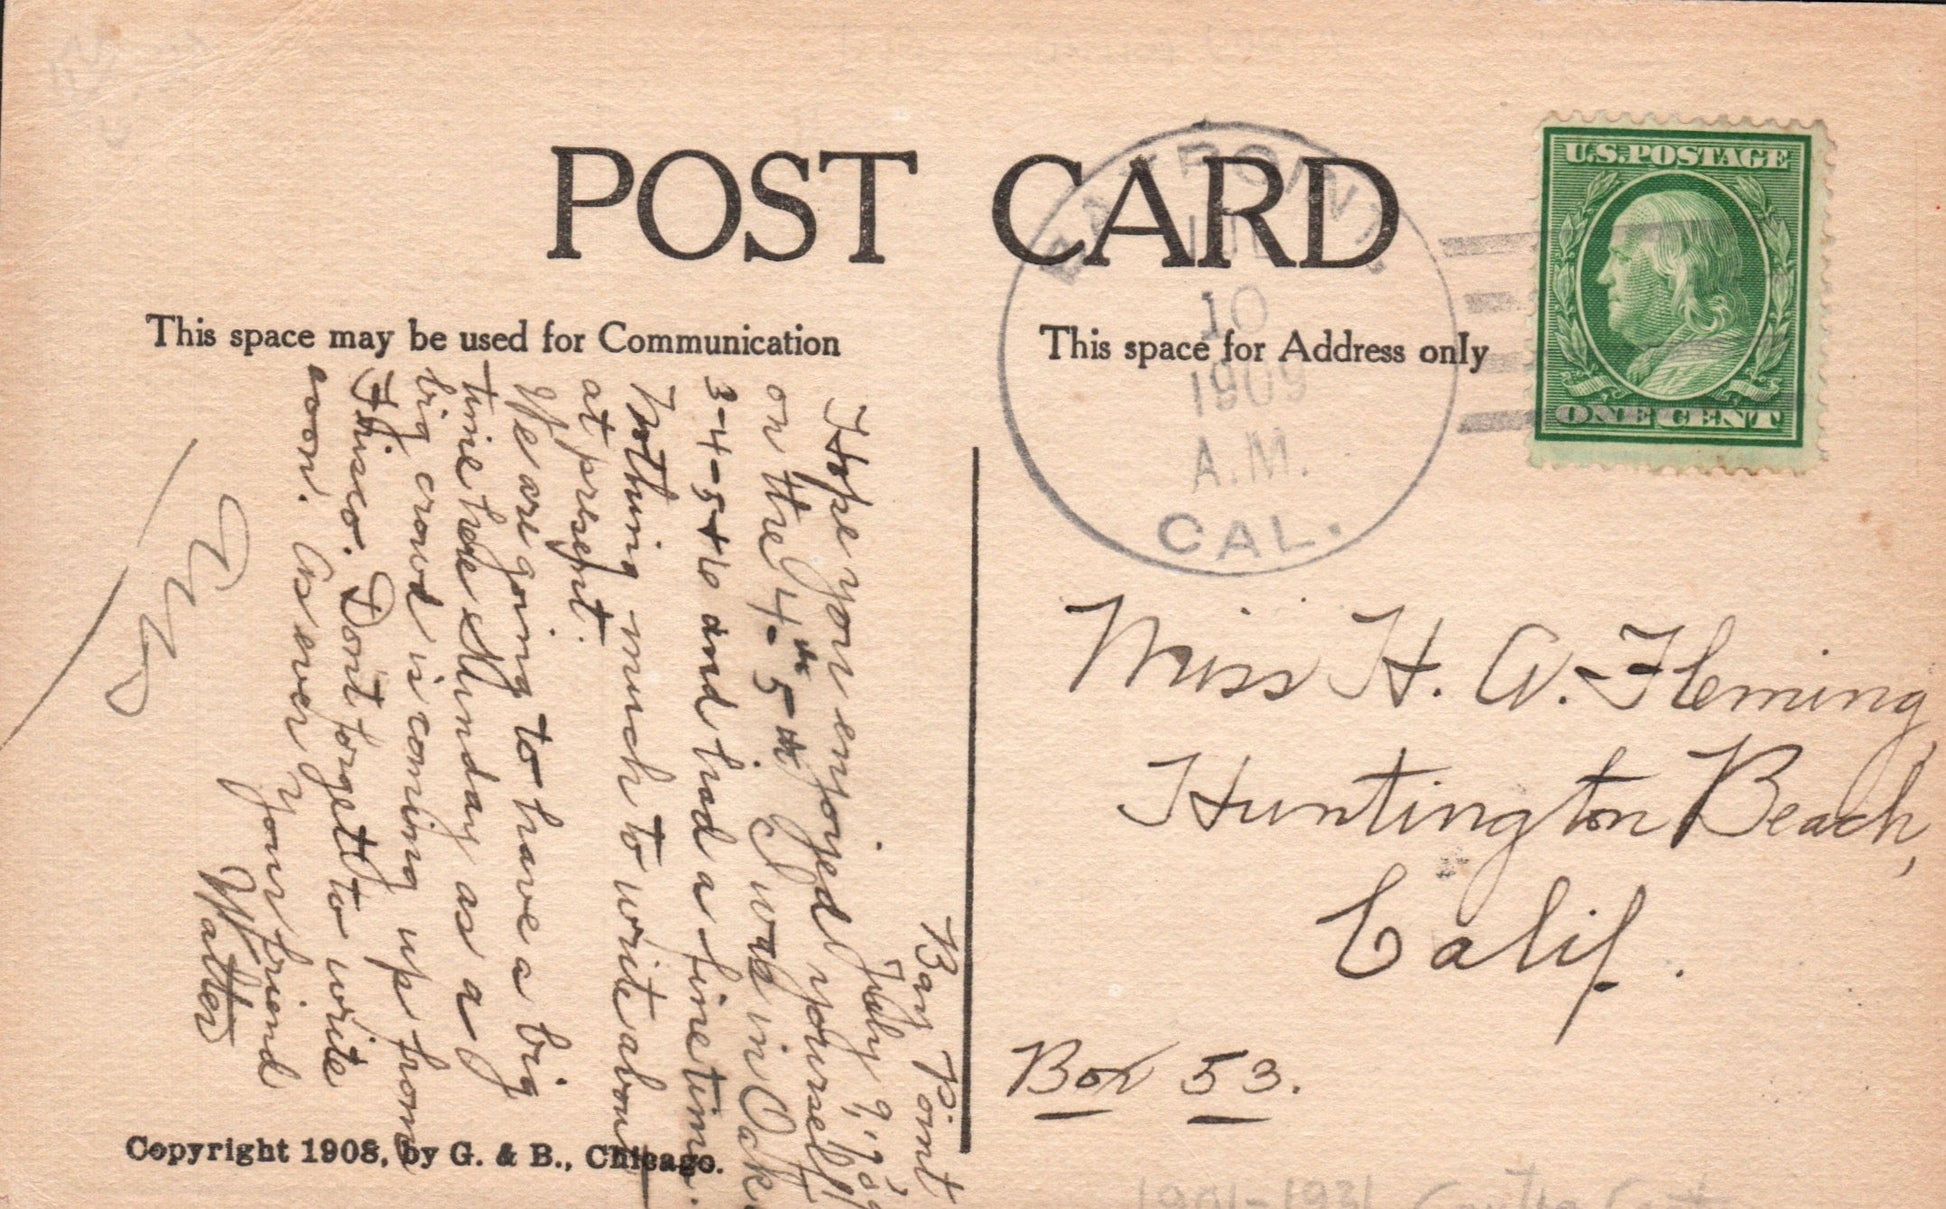 POST CARD
This space may be used for Communication
This space for Address only
BAY POINT,
JUL
10
1909
A.M.
CAL.
U.S. POSTAGE
ONE CENT
Bay Point
July 9, '09
Hope you enjoyed yourself
on the 4th 5th. I was in Oak.
3-4-5+6 and had a fine time.
Nothing much to write about
at present.
We are going to have a big
time here Sunday as a
big crowd is coming up from
Frisco. Don't forget to write
soon. As ever your friend
Walter
Miss H. A. Fleming,
Huntington Beach,
Calif.
Box 53.
Copyright 1908, by G. & B., Chicago.
1901-1931 Contra Costa